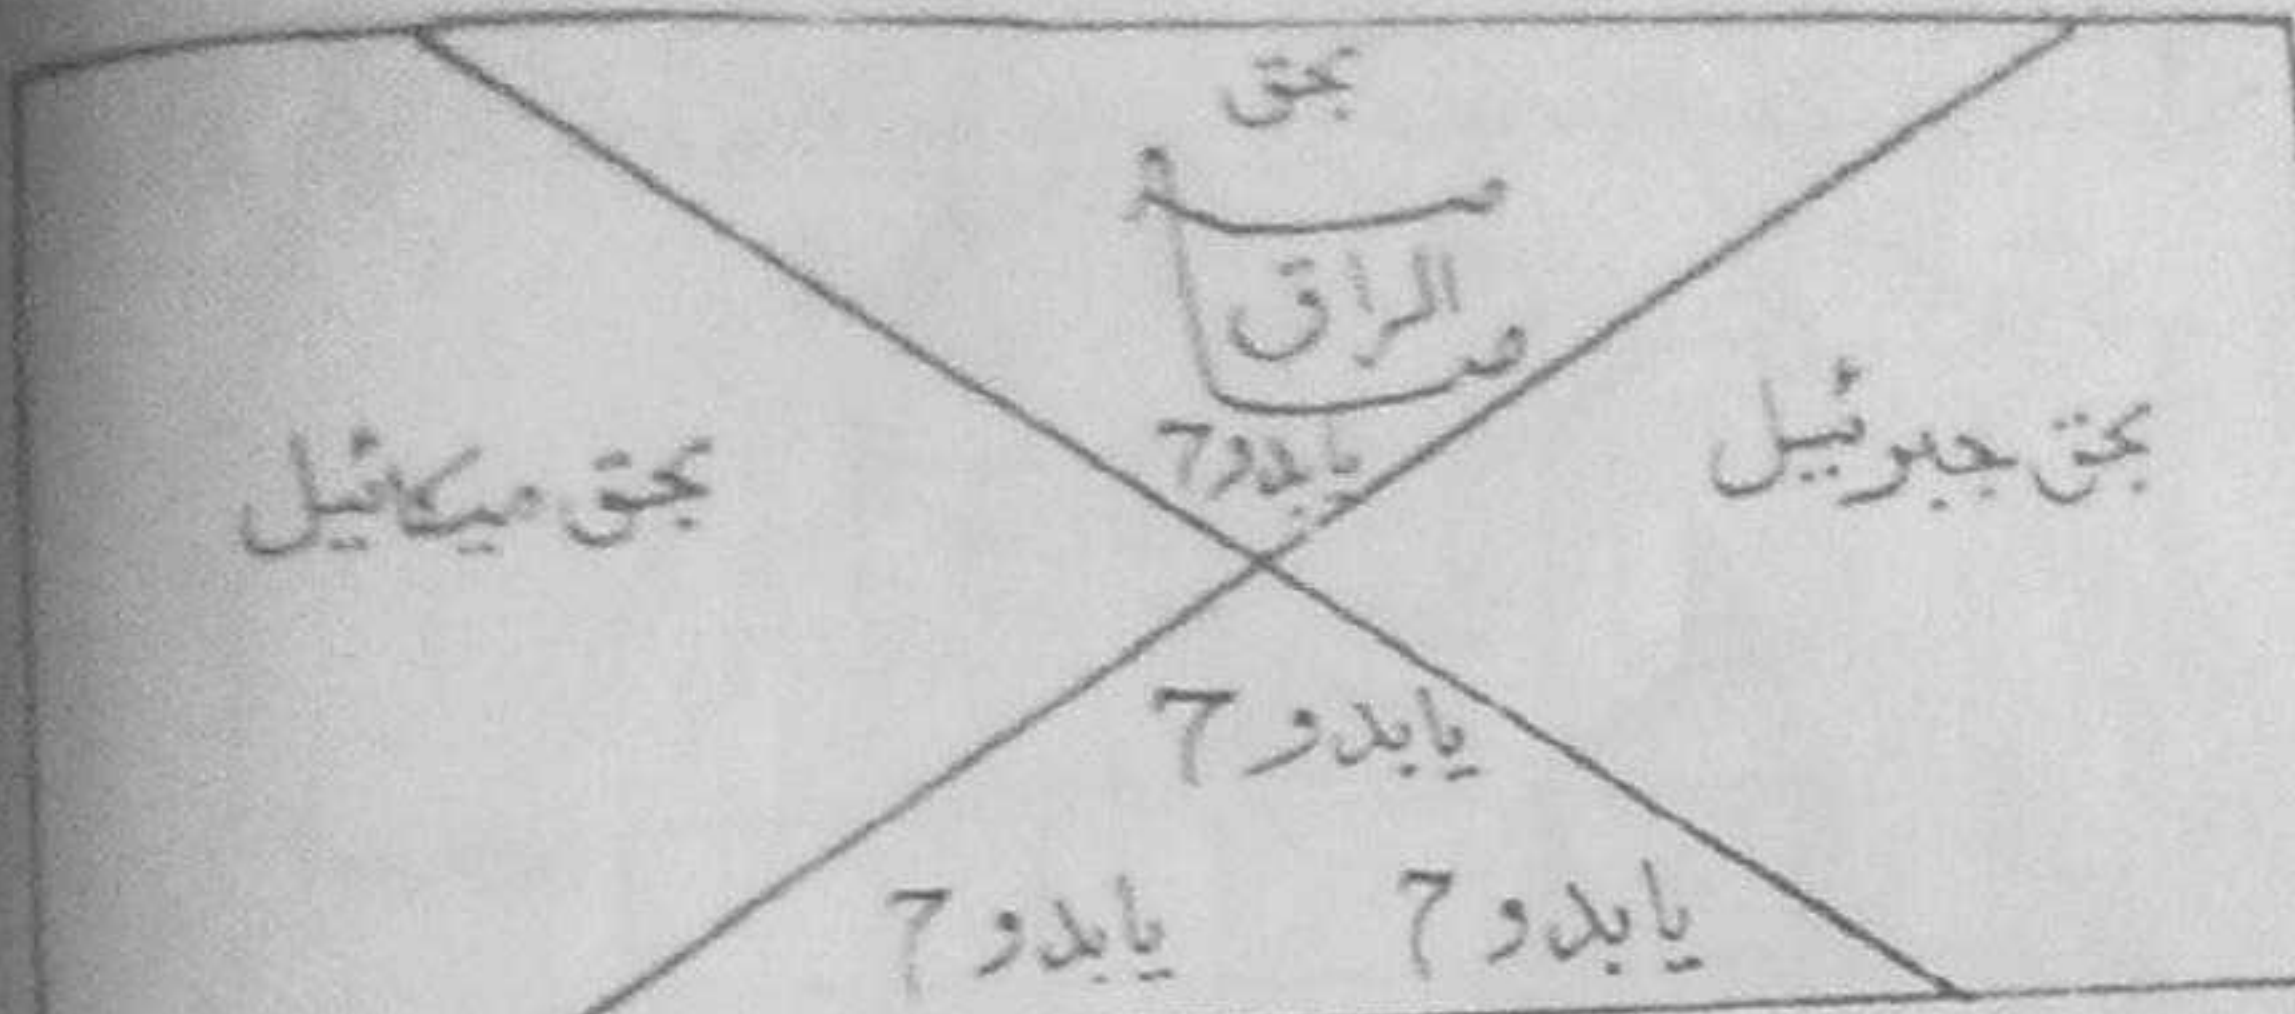 بحق
الراق
يابدوح
بحق جبرئيل
بحق ميكائيل
يابدوح
يابدوح
يابدوح